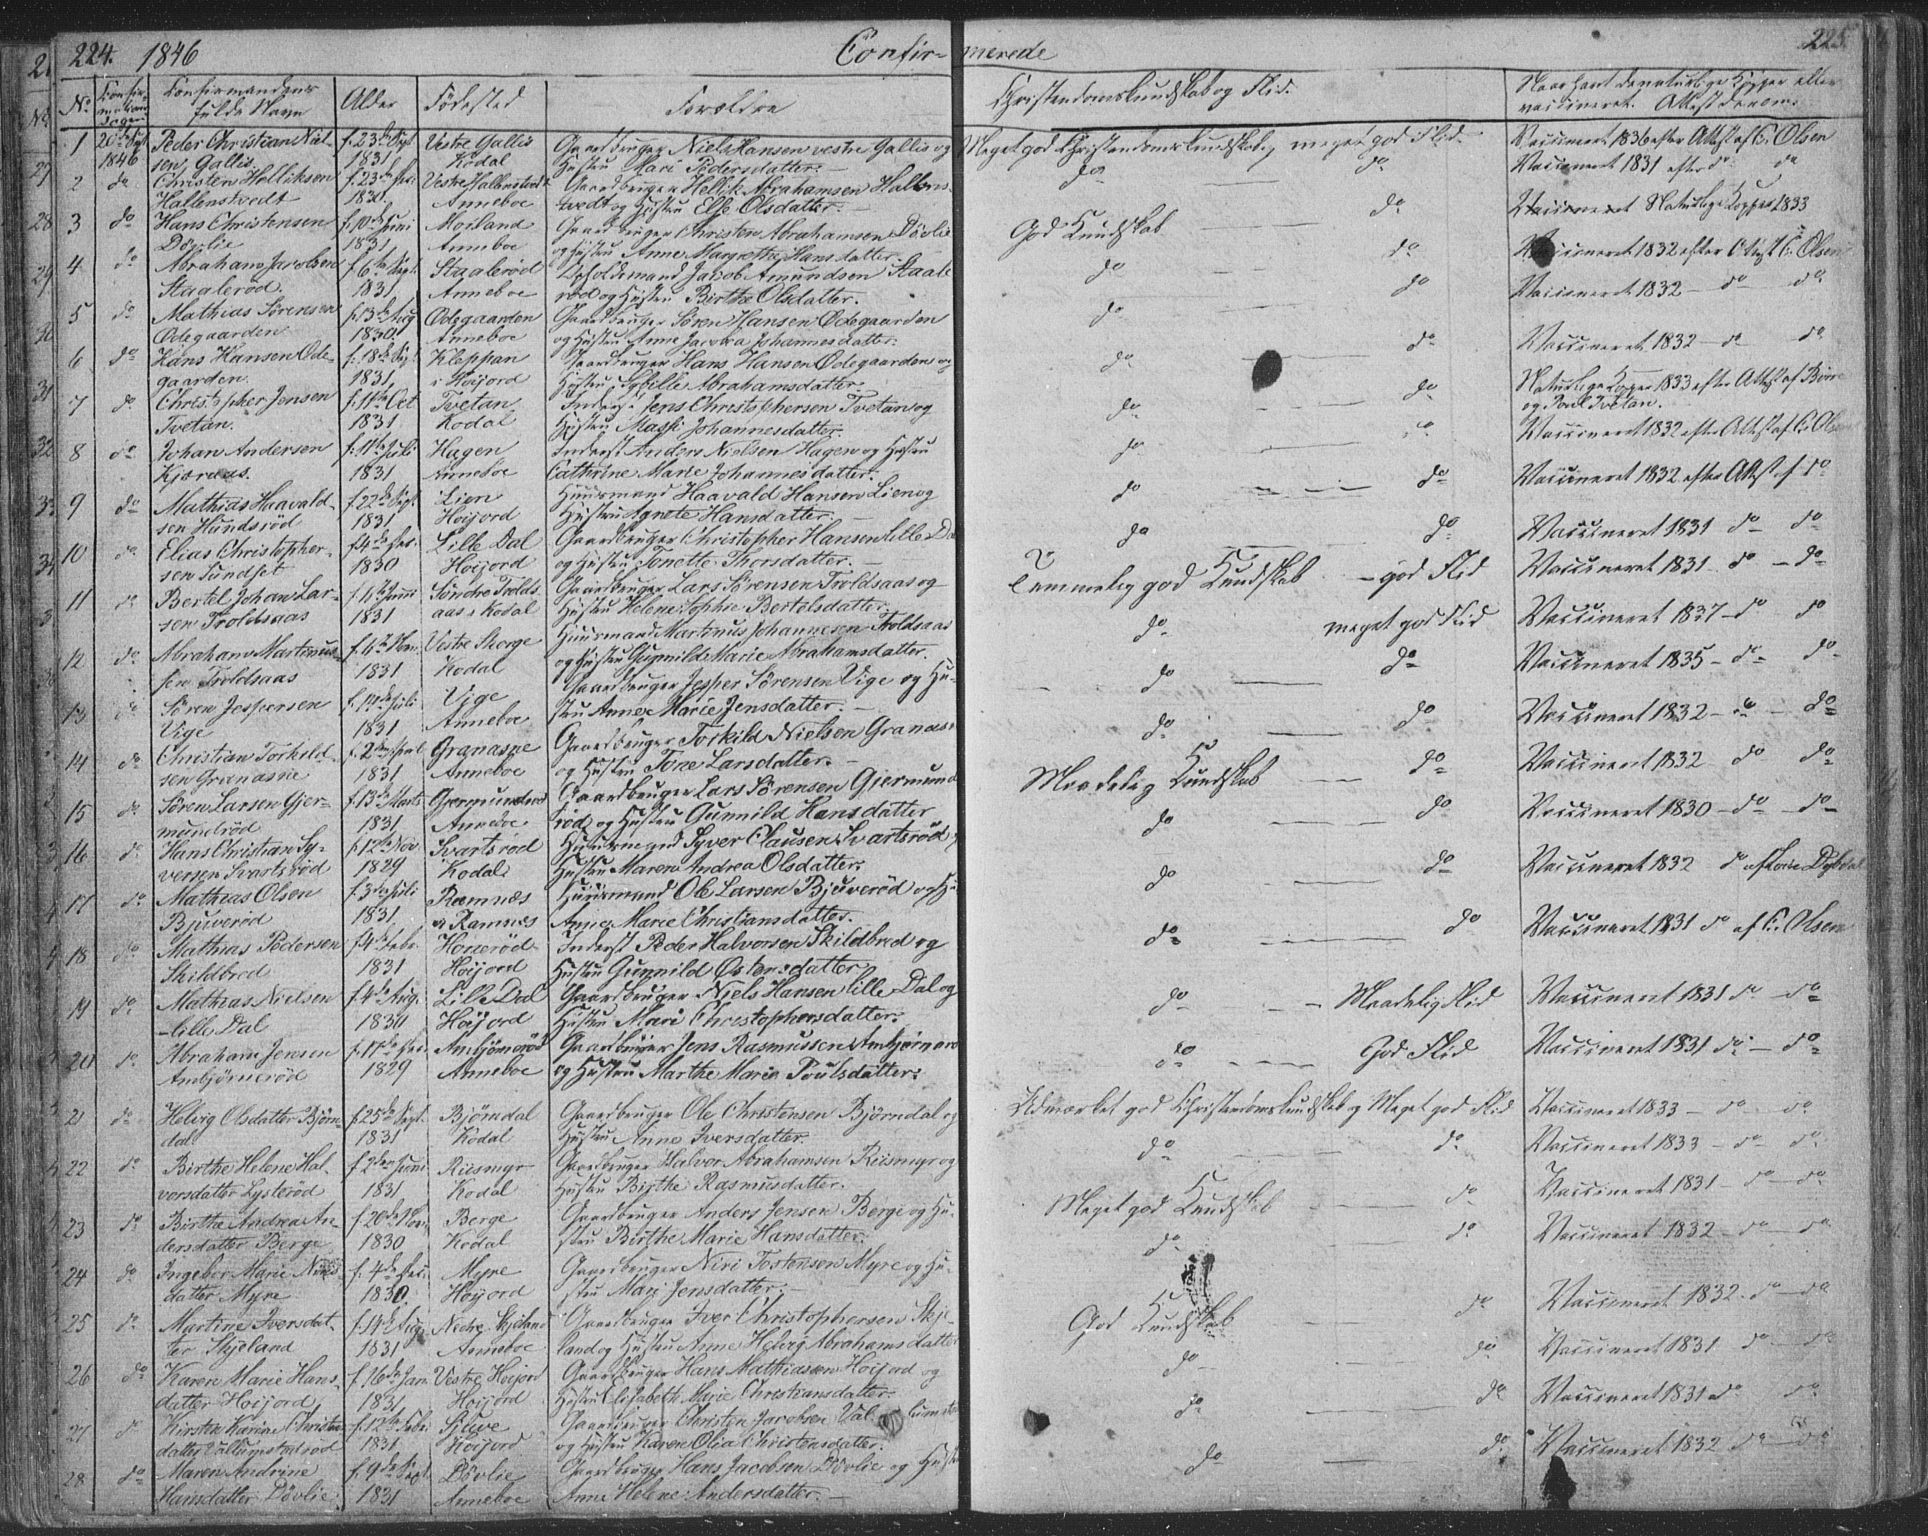 224. 1846 Confir- merede 225.
No. Confirmandens fulde Navn Alder Fødested Forældre Christendomskundskab og Flid. Naar havt de naturlige Kopper eller vaccineret. Attest derom.
1 20de Sept. 1846 Peder Christian Nielsen Gallis f. 23de Sept. 1831 Vestre Gallis Kodal Gaardbruger Niels Hansen vestre Gallis og Hustru Mari Pedersdatter. Meget god Christendomskundskab, meget god Flid. Vaccineret 1836 efter Attest af C. Olsen
2 do Christen Helliksen Hallenstvedt 1830 Anneboe Gaardbruger Hellik Abrahamsen Hallenstvedt og Hustru Else Olsdatter. do do Vaccineret 1831 efter do do
3 do Hans Christensen Døvlie f. 10de Juni 1831 Moiland Anneboe Gaardbruger Christen Abrahamsen Døvlie og Hustru Anne Margrethe Hansdatter. God Kundskab do Naturlige Kopper 1833
4 do Abraham Jacobsen Staalerød. f. 6te Sept. 1831 Staalerød Anneboe Opholdsmand Jakob Amundsen Staalerød og Hustru Birthe Olsdatter. do do Vaccineret 1832 efter Attest C. Olsen
5 do Mathias Sørensen Ødegaarden f. 13de Aug 1830 Ødegaarden Anneboe Gaardbruger Søren Hansen Ødegaarden og Hustru Anne Jacobea Johannesdatter. do do Vaccineret 1832 – do do
6 do Hans Hansen Ødegaarden. f. 18de Sept 1831 Kleppan i Høijord Gaardbruger Hans Hansen Ødegaarden og Hustru Sybille Abrahamsdatter. do do Vaccineret 1832 – do do
7 do Christopher Jensen Tvetan. f. 11te Oct 1831 Tvetan Kodal Inderst Jens Christophersen Tvetan og Hustru Massi Johannesdatter do do Naturlige Kopper 1833 efter Attest af og Poul Tvetan.
8 do Johan Andersen Kjøraas. f. 11te Juli 1831 Hagen Anneboe Inderst Anders Nielsen Hagen og Hustru Cathrine Marie Johannesdatter. do do Vaccineret 1832 efter Attest af C. Olsen
9 do Mathias Haavaldsen Hundsrød f. 22de Sept. 1831 Lien Høijord Huusmand Haavald Hansen Lien og Hustru Agnete Hansdatter. do do Vaccineret 1832 efter Attest af do
10 do Elias Christophersen Sundset 1830 Lille Dal Høijord Gaardbruger Christopher Hansen lille Dal og Hustru Tonette Thorsdatter. do do Vaccineret 1831 do do
11 do Bertel Johan Larsen Troldsaas 1831 Søndre Troldsaas i Kodal Gaardbruger Lars Sørensen Troldsaas og Hustru Helene Sophie Bertelsdatter. Temmelig god Kundskab – god Flid Vaccineret 1831 do – do
12 do Abraham Martinussen Troldsaas 1831 Vestre Skorge Kodal Huusmand Martinus Johannesen Troldsaas og Hustru Gunnild Marie Abrahamsdatter. do meget god Flid Vaccineret 1837 – do do
13 do Søren Jespersen Vige f. 14de Juli 1831 Vige Anneboe Gaardbruger Jesper Sørensen Vige og Hustru Anne Marie Jensdatter. do do Vaccineret 1835 – do – do
14 do Christian Torkildsen Granasne 1831 Granasne Anneboe Gaardbruger Torkild Nielsen Granasne og Hustru Tone Larsdatter. do do Vaccineret 1832 – do – do
15 do Søren Larsen Gjermundrød f. 13de Marts 1831 Gjermundrød Anneboe Gaardbruger Lars Sørensen Gjermundrød og Hustru Gunnild Hansdatter Maadelig Kundskab do Vaccineret 1832 do do
16 do Hans Christian Syversen Svartsrød f. 12te Nov. 1829 Svartsrød Kodal Huusmand Syver Clausen Svartsrød Hustru Maren Andrea Olsdatter. do do Vaccineret 1830 – do – do
17 do Mathias Olsen Bjuverød f. 3de Juli 1831 Ramnæs Ramnæs Huusmand Ole Larsen Bjuverød og Hu Anne Marie Christiansdatter. do do Vaccineret 1832 do
18 do Mathias Pedersen Skildbred f. 4de Febr. 1831 Høijord Inderst Peder Halvorsen Skildbred og Hustru Gunnild Østensdatter do do Vaccineret 1831 do af C. Olsen
19 do Mathias Nielsen lille Dal f. 4de Aug. 1830 Lille Dal Høijord Gaardbruger Niels Hansen lille Dal og Hustru Mari Christophersdatter. do – Maadelig Flid Vaccineret 1831 do – do
20 do Abraham Jensen Ambjørnrød 1829 Ambjørnrød Anneboe Gaardbruger Jens Rasmussen Ambjørnrød og Hustru Marthe Maria Poulsdatter. do God Flid Vaccineret 1831 do – do
21 do Helvig Olsdatter Bjørndal f. 25de Sept. 1831 Bjørndal Kodal Gaardbruger Ole Christensen Bjørndal og Hustru Anne Iversdatter. Udmærket god Christendomskundskab og Meget god Flid Vaccineret 1833 – do do
22 do Birthe Helene Halvorsdatter Lysterød f. 2den Juni 1831 Riismyr Kodal Gaardbruger Halvor Abrahamsen Riismyr og Hustru Birthe Rasmusdatter. do do Vaccineret 1833 – do – do
23 do Birthe Andrea Andersdatter Berge 1830 Berge Kodal Gaardbruger Anders Jensen Berge og Hustru Birthe Marie Hansdatter. Meget god Kundskab do Vaccineret 1831 – do – do
24 do Ingeber Marie Niri datter Myre 1830 Myre Høijord Gaardbruger Niri Tostensen Myre og Hustru Mari Jensdatter. do do Vaccineret 1832 – do – do
25 do Martine Iversdatter Skjeland f. 14de Aug. 1831 Nedre Skjeland Anneboe Gaardbruger Iver Christophersen Skjeland og Hustru Anne Helvig Abrahamsdatter God Kundskab do Vaccineret 1832 – do – do
26 do Karen Marie Hansdatter Høijord f. 16de Jan. 1831 Vestre Høijord Høijord Gaardbruger Hans Mathiasen Høijord og Hustru Elisabeth Marie Christiansdatter. do do Vaccineret 1831 do – do
27 do Kirsten Karine Christensdatter f. 12te Febr. 1831 Høijord Gaardbruger Christen Jacobsen og Hustru Karen Olia Christensdatter. do do Vaccineret 1831 – do do
28 do Maren Andrine Hansdatter Døvlie f. 9de Sept. 1831 Døvlie Anneboe Gaardbruger Hans Jacobsen Døvlie og Hustru Anne Helene Andersdatter. – do do Vaccineret 1832 do – do